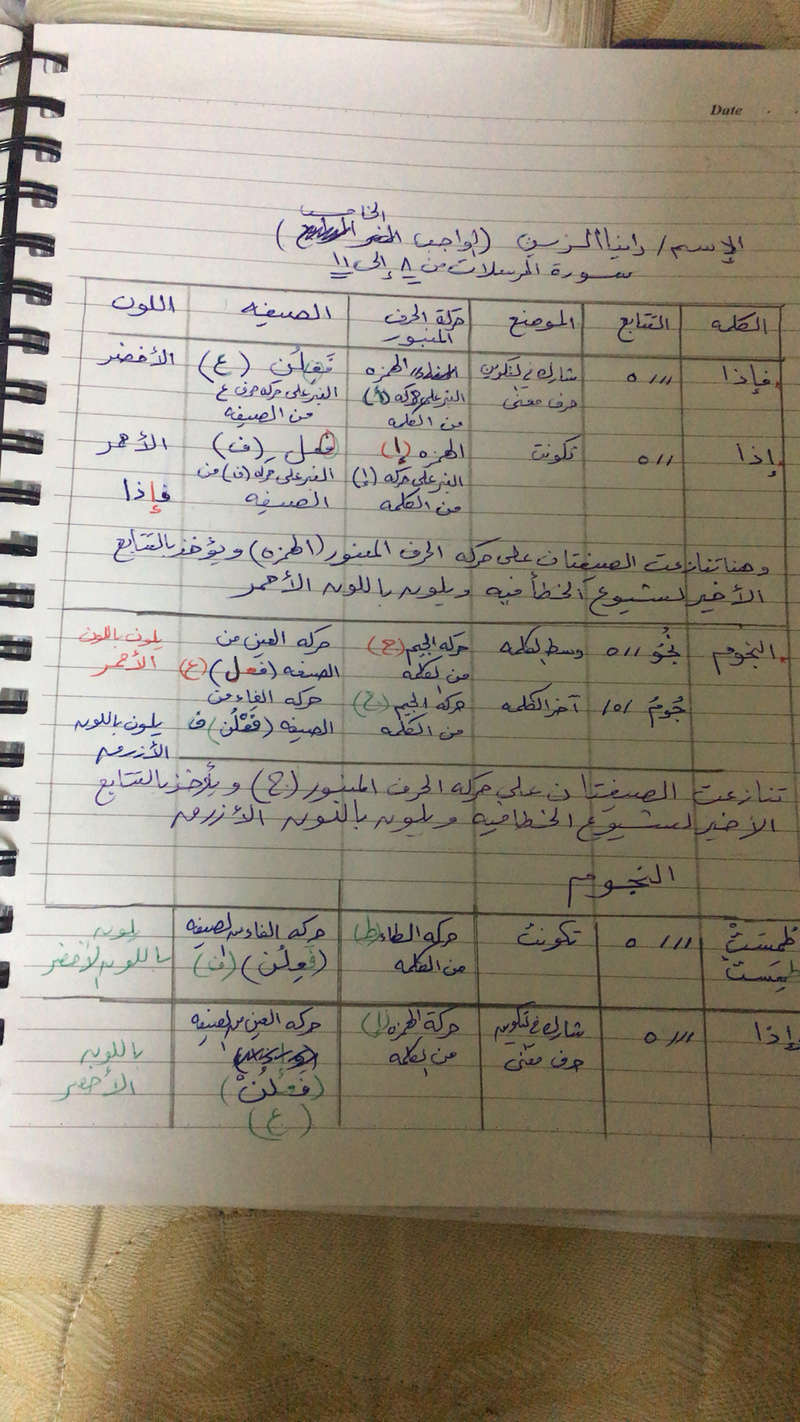 Date
الخامس
الإسم / دانيا الزين (الواجب )
سورة المرسلات من ٨ إلى ١١
الكلمه التتابع الموضع حركة الحرف المنبور الصيغه اللون
فإذا ///ه شارك في تكوين الهمزه فَعِلُن (ع) الأخضر
حرف معنى النبر على حركه (إ) النبر على حركه حرف ع
من الكلمه من الصيغه
إذا //ه تكونت الهمزه (إ) فعل (ف) الأحمر
النبر على حركه (إ) النبر على حركه (ف) من
من الكلمه الصيغه فإذا
وهنا تنازعت الصيغتان على حركه الحرف المنبور (الهمزه) ويؤخذ بالتتابع
الأخير لشيوع الخطأ فيه ويلون باللون الأحمر
النجوم نُجُو //ه وسط الكلمه حركه الجيم (ج) حركه العين من يلون باللون
من الكلمه الصيغه (فعل) (ع) الأحمر
جُومُ /ه/ آخر الكلمه حركه الجيم (ج) حركه الفاء من
من الكلمه الصيغه (فَعْلُن) ف يلون باللون
الأزرق
تنازعت الصيغتان على حركه الحرف المنبور (ج) ويؤخذ بالتتابع
الأخير لشيوع الخطا فيه ويلون باللون الأزرق
النجوم
طُمِسَتْ ///ه تكونت حركه الطاء (ط) حركه الفاء من الصيغه يلون
طُمِسَتْ من الكلمه (فَعِلُن) (ف) باللون الأخضر
إذا ///ه شارك في تكوين حركة الهمزه (إ) حركه العين من الصيغه
حرف معنى من الكلمه باللون
(فَعِلُنْ) الأخضر
(ع)